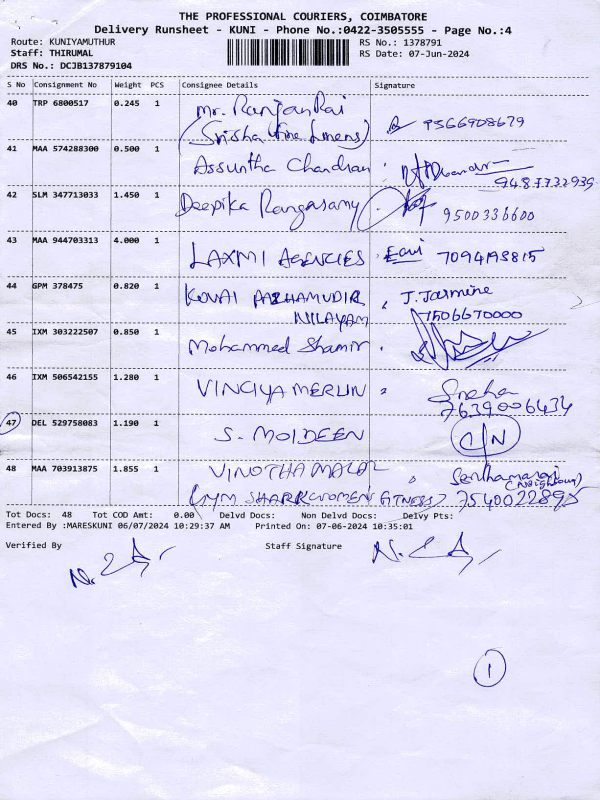 THE PROFESSIONAL COURIERS, COIMBATORE
Delivery Runsheet - KUNI - Phone No.:0422-3505555 - Page No.:4
Route: KUNIYAMUTHUR RS No.: 1378791
Staff: THIRUMAL RS Date: 07-Jun-2024
DRS No.: DCJB137879104
S No Consignment No Weight PCS Consignee Details Signature
40 TRP 6800517 0.245 1 Mr. Ranjan Rai
(Srisha Fine Linens) 9566908679
41 MAA 574288300 0.500 1 Assuntha Chandran
9487732939
42 SLM 347713033 1.450 1 Deepika Rangasamy 9500336600
43 MAA 944703313 4.000 1 LAXMI AGENCIES 7094198815
44 GPM 378475 0.820 1 KOVAI PAZHAMUDIR J. Jasmine
NILAYAM 7506670000
45 IXM 303222507 0.850 1 Mohammed Shamir
46 IXM 506542155 1.280 1 VINCIYA MERLIN Sneha
7639006434
47 DEL 529758083 1.190 1 S. MOIDEEN C/N
48 MAA 703913875 1.855 1 VINOTHA MALAR
(GYM SHARK WOMEN FITNESS) 7540022895
Tot Docs: 48 Tot COD Amt: 0.00 Delvd Docs: Non Delvd Docs: Delvy Pts:
Entered By :MARESKUNI 06/07/2024 10:29:37 AM Printed On: 07-06-2024 10:35:01
Verified By Staff Signature
1